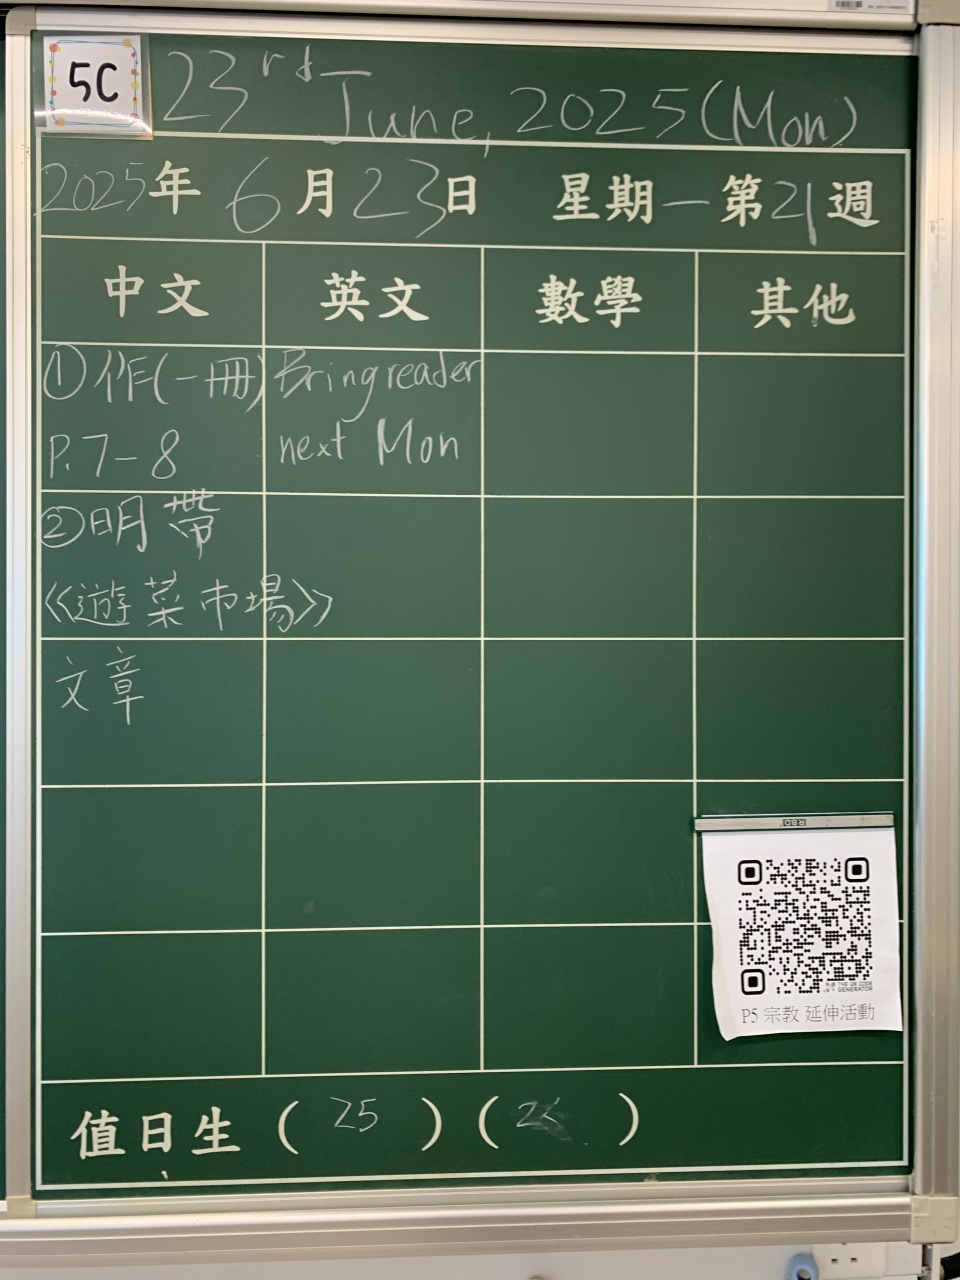 5C
23rd June, 2025 (Mon)
2025年 6月23日 星期一 第21週
中文 英文 數學 其他
①作(一冊)
P.7-8
②明帶
《遊菜市場》
文章
Bring reader
next Mon
RBD
THE QR CODE
GENERATOR
P5 宗教 延伸活動
值日生 ( 25 ) ( )